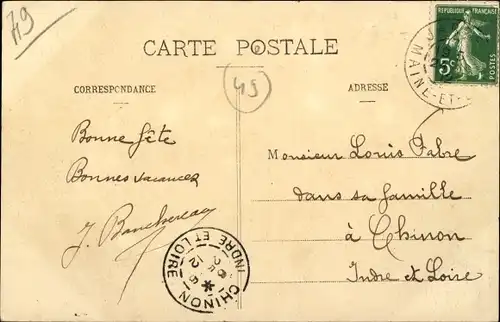 49
CARTE POSTALE
49
CORRESPONDANCE
ADRESSE
RÉPUBLIQUE FRANÇAISE
5c
POSTES
MAINE-ET-
Bonne fête
Bonnes vacances
J.
Monsieur Louis Fabre
dans sa famille
à Chinon
Indre et Loire
CHINON
INDRE ET LOIRE
12